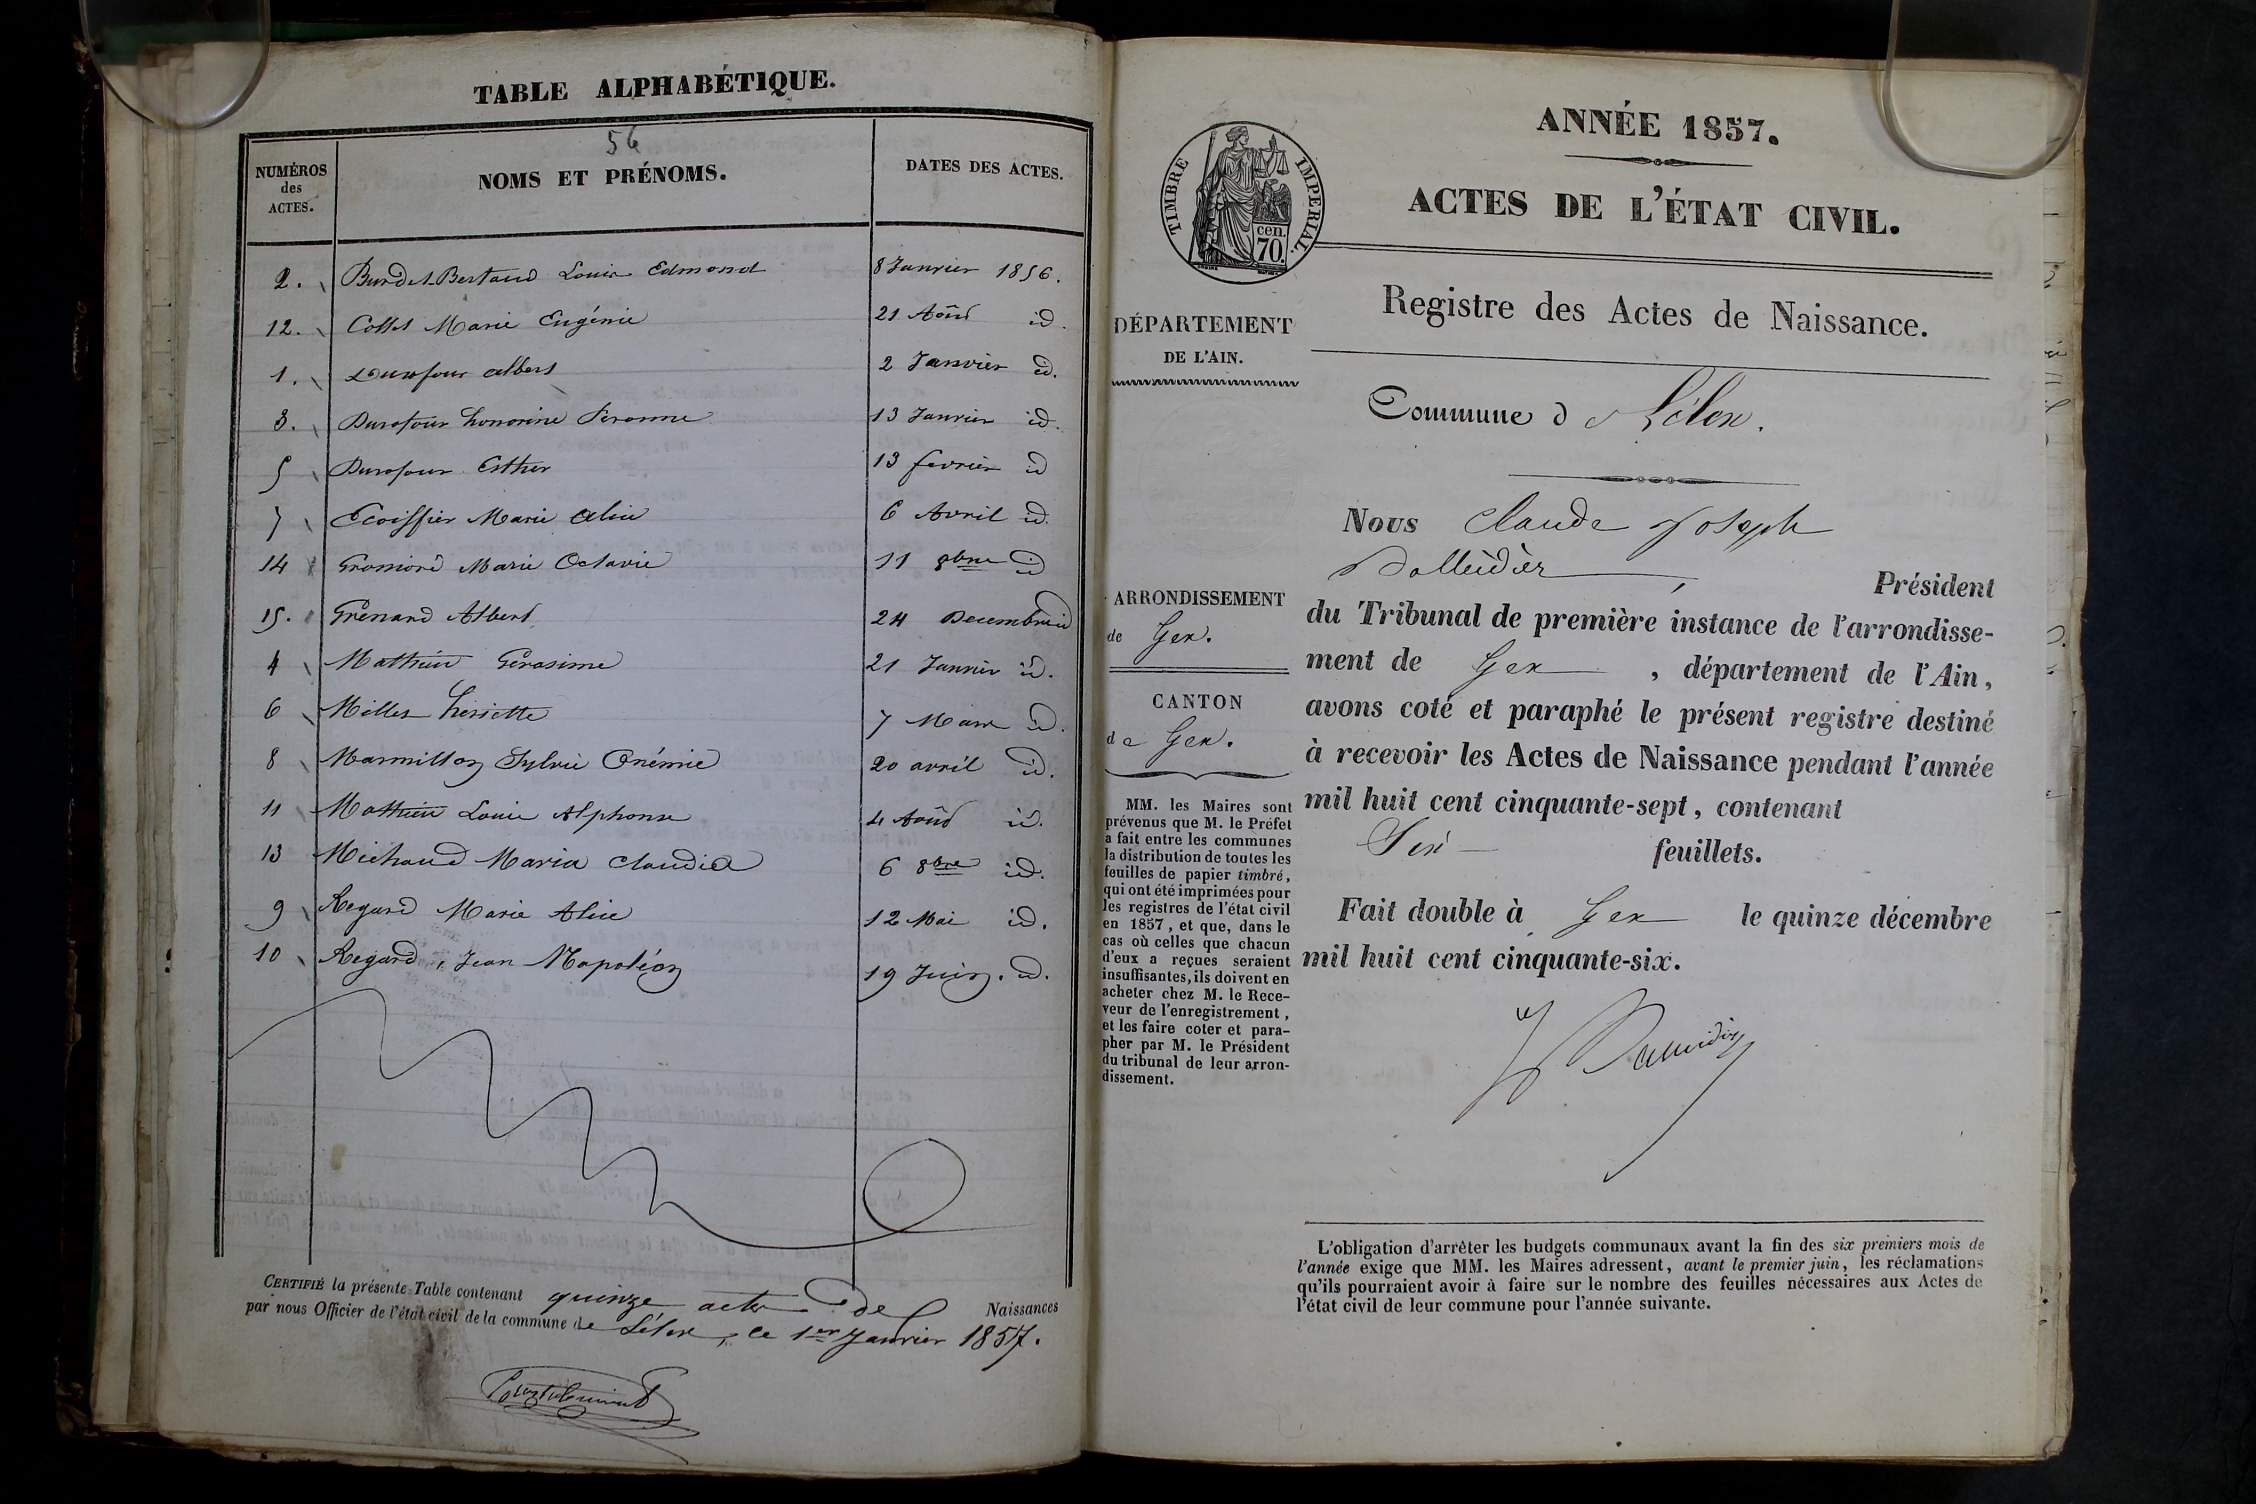 TABLE ALPHABÉTIQUE.
56
NUMÉROS
des
ACTES.
NOMS ET PRÉNOMS.
DATES DES ACTES.
2. Burdet Bertand Louis Edmond 8 Janvier 1856.
12. Collet Marie Eugénie 21 Août id.
1. Durafour Albert 2 Janvier id.
3. Durafour honorine Peronne 13 Janvier id.
5 Durafour Esther 13 fevrier id
7 Ecoiffier Marie Alice 6 Avril id.
14 Gromord Marie Octavie 11 8bre id
15. Grenard Albert 24 Decembre id
4 Mathieu Gerasime 21 Janvier id.
6 Millet henriette 7 Mars id.
8 Marmillon Sylvie Onémie 20 avril id.
11 Mathieu Louis Alphonse 4 Août id.
13 Michaud Maria Claudia 6 8bre id.
9 Regard Marie Alice 12 Mai id.
10 Regard, Jean Napoléon 19 Juin. id.
CERTIFIÉ la présente Table contenant quinze actes de Naissances
par nous Officier de l'état civil de la commune de Lélex, ce 1er Janvier 1857.
TIMBRE IMPÉRIAL.
cen.
70.
ANNÉE 1857.
ACTES DE L'ÉTAT CIVIL.
Registre des Actes de Naissance.
DÉPARTEMENT
DE L'AIN.
Commune d e Lélex.
ARRONDISSEMENT
de Gex.
CANTON
de Gex.
MM. les Maires sont
prévenus que M. le Préfet
a fait entre les communes
la distribution de toutes les
feuilles de papier timbré,
qui ont été imprimées pour
les registres de l'état civil
en 1857, et que, dans le
cas où celles que chacun
d'eux a reçues seraient
insuffisantes, ils doivent en
acheter chez M. le Rece-
veur de l'enregistrement,
et les faire coter et para-
pher par M. le Président
du tribunal de leur arron-
dissement.
Nous Claude Joseph
Balleidier, Président
du Tribunal de première instance de l'arrondisse-
ment de Gex, département de l'Ain,
avons coté et paraphé le présent registre destiné
à recevoir les Actes de Naissance pendant l'année
mil huit cent cinquante-sept, contenant
Six feuillets.
Fait double à Gex le quinze décembre
mil huit cent cinquante-six.
L'obligation d'arrêter les budgets communaux avant la fin des six premiers mois de
l'année exige que MM. les Maires adressent, avant le premier juin, les réclamations
qu'ils pourraient avoir à faire sur le nombre des feuilles nécessaires aux Actes de
l'état civil de leur commune pour l'année suivante.